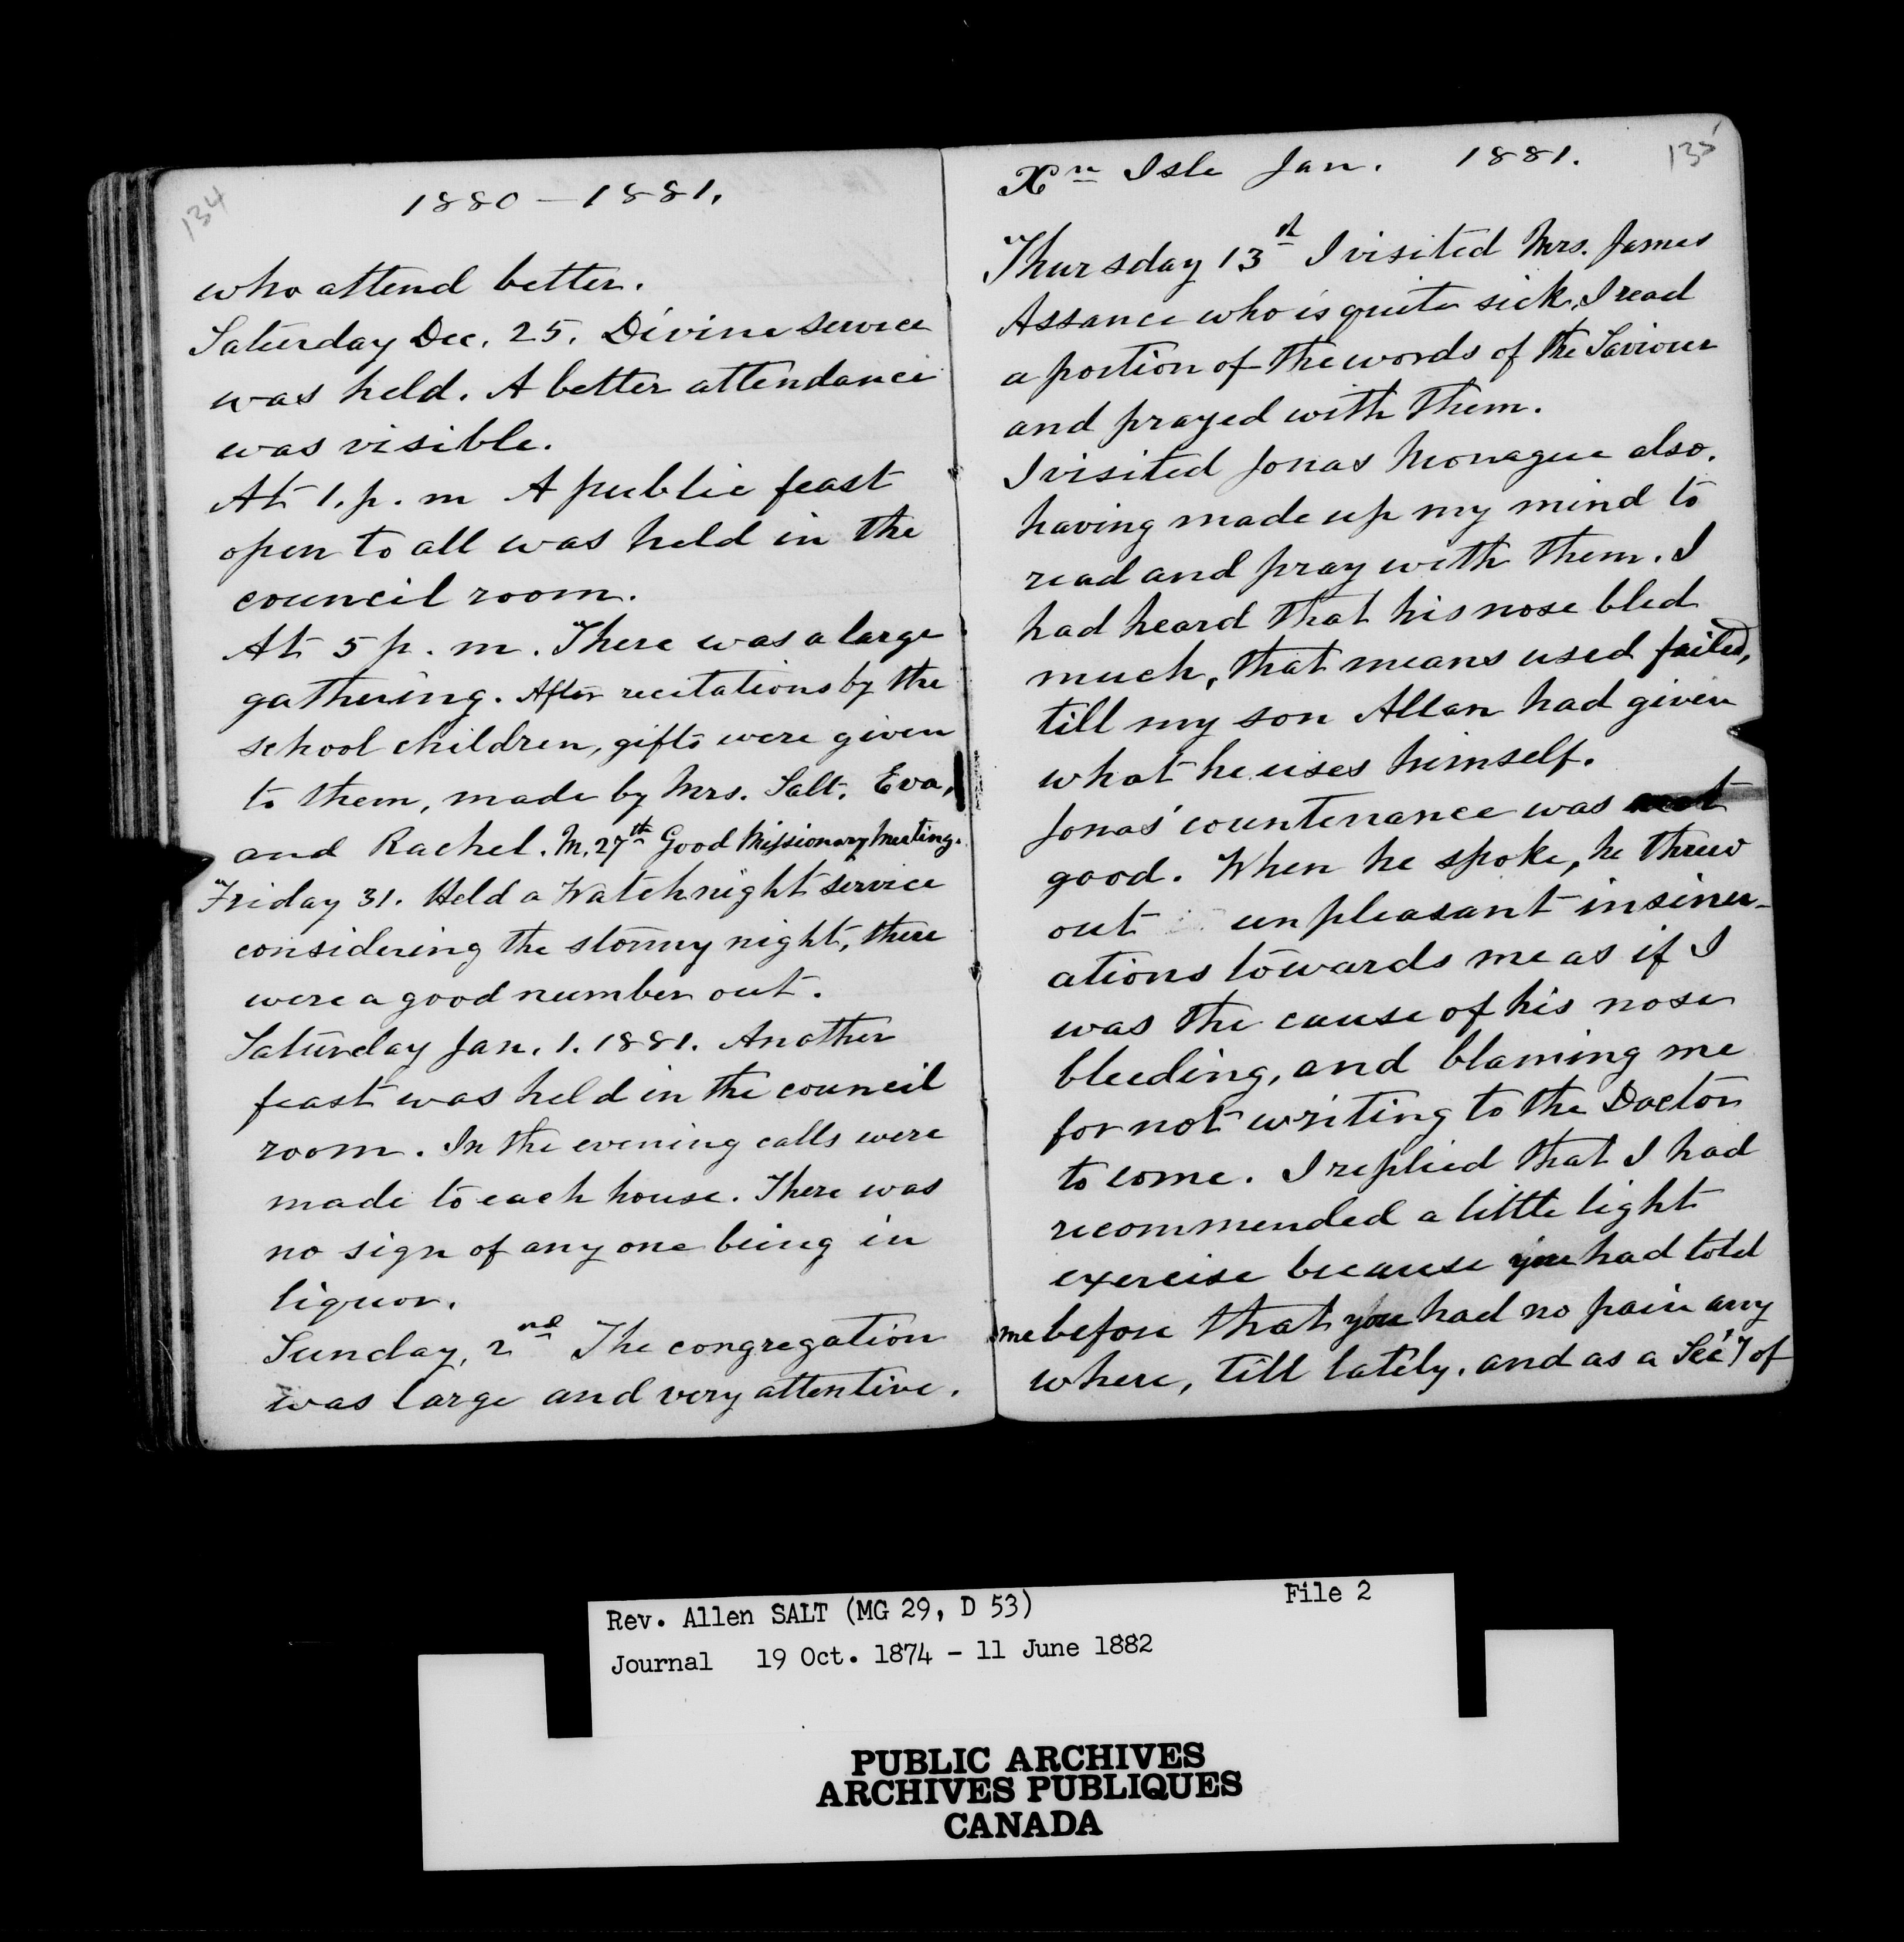 134
1880 – 1881.
who attend better.
Saturday Dec. 25. Divine service
was held. A better attendance
was visible.
At 1. p. m A public feast
open to all was held in the
council room.
At 5 p. m. There was a large
gathering. After recitations by the
school children, gifts were given
to them, made by Mrs. Salt. Eva,
and Rachel. M. 27th Good Missionary Meeting.
Friday 31. Held a Watchnight service
considering the stormy night, there
were a good number out.
Saturday Jan. 1. 1881. Another
feast was held in the council
room. In the evening calls were
made to each house. There was
no sign of any one being in
liquor.
Sunday, 2nd The congregation
was large and very attentive.
135
Xn Isle Jan. 1881.
Thursday 13th I visited Mrs. James
Assance who is quite sick. I read
a portion of the words of the Saviour
and prayed with them.
I visited Jonas Monague also.
having made up my mind to
read and pray with them. I
had heard that his nose bled
much, that means used failed,
till my son Allan had given
what he uses himself.
Jonas' countenance was not
good. When he spoke, he threw
out unpleasant insinu-
ations towards me as if I
was the cause of his nose
bleeding, and blaming me
for not writing to the Doctor
to come. I replied that I had
recommended a little light
exercise because you had told
me before that you had no pain any
where, till lately. and as a Sec'y of
Rev. Allen SALT (MG 29, D 53) File 2
Journal 19 Oct. 1874 - 11 June 1882
PUBLIC ARCHIVES
ARCHIVES PUBLIQUES
CANADA